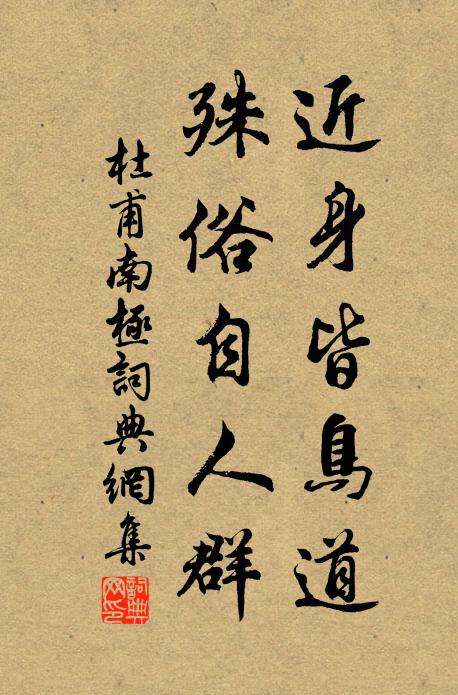 近身皆鳥道
殊俗自人群
杜甫南極詞典網集
詞典網印